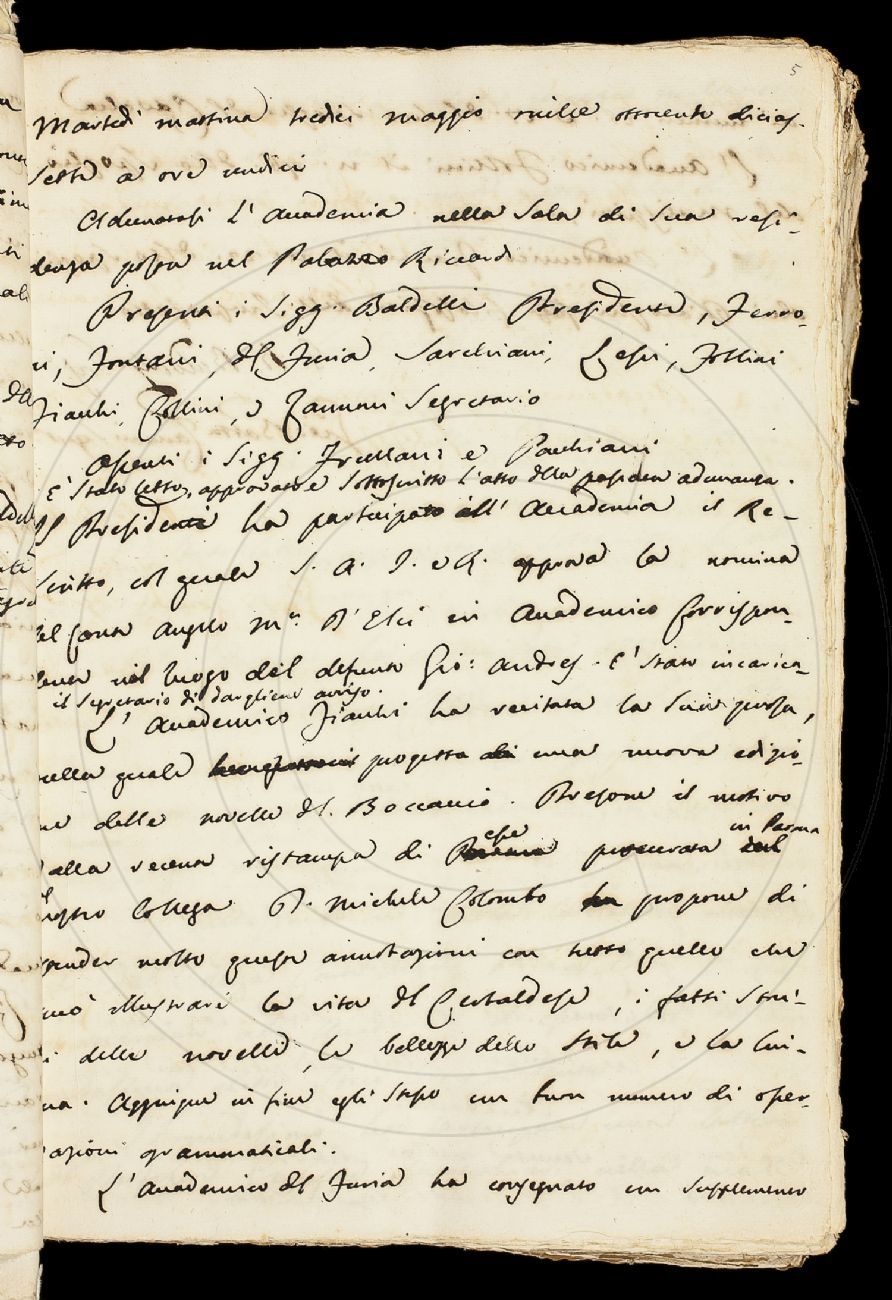 5
Martedì mattina tredici maggio mille ottocento dicias-
sette a ore undici
Adunatasi l'Accademia nella Sala di sua resi-
denza posta nel Palazzo Riccardi
Presenti i Sigg. Baldelli Presidente, Ferro-
ni, Fontani, del Furia, Sarchiani, Lessi, Follini
Fiacchi, Collini, e Zannoni Segretario
Assenti i Sigg. Frullani e Pacchiani
È stato letto, approvato e sottoscritto l'atto della passata adunanza.
Il Presidente ha partecipato all'Accademia il Re-
scritto, col quale S. A. I. e R. approva la nomina
del Conte Angelo Mª D'Elci in Accademico Corrispon-
dente nel luogo del defunto Gio: Andres. È stato incarica-
il Segretario di dargliene avviso.
L'Accademico Fiacchi ha recitata la sua prosa,
nella quale progetta una nuova edizio-
ne delle novelle del Boccaccio. Presone il motivo
dalla recente ristampa di esse procurata in Parma
dal
nostro Collega D. Michele Colombo propone di
estender molto queste annotazioni con tutto quello che
può illustrare la vita del Certaldese, i fatti stori-
ci delle novelle, le bellezze dello stile, e la lin-
gua. Aggiugne in fine egli stesso un buon numero di osser-
vazioni grammaticali.
L'Accademico del Furia ha consegnato un supplemento